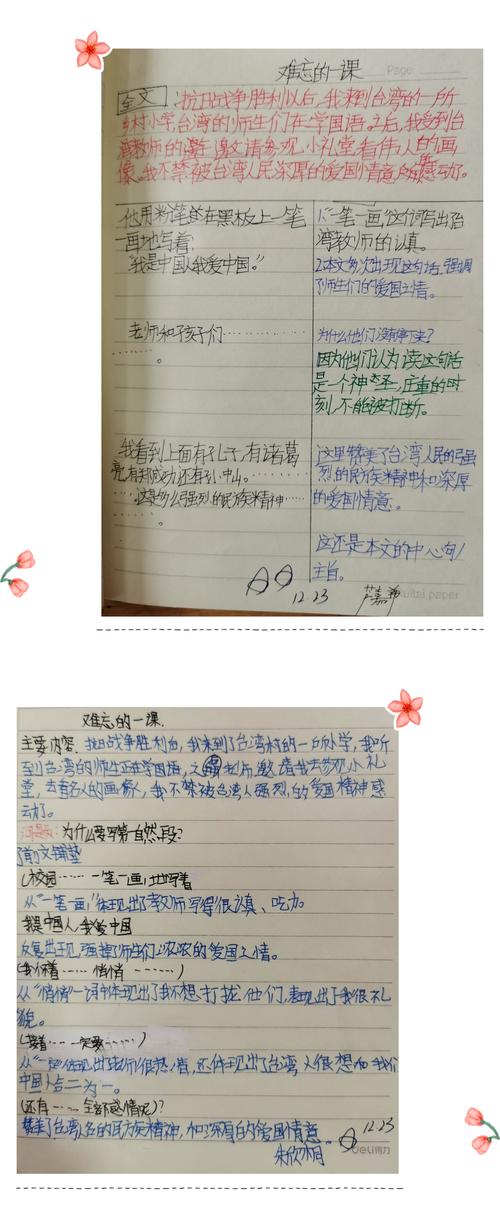 难忘的一课
Page:
全文：抗日战争胜利以后，我来到台湾的一所
乡村小学，台湾的师生们在学国语。之后，我受到台
湾教师的邀请参观小礼堂，看伟人的画
像。我不禁被台湾人民深厚的爱国情意所感动了。
他用粉笔在黑板上一笔
一画地写着：
"我是中国人，我爱中国。"
1."一笔一画"这个词写出台
湾教师的认真。
2.本文多次出现这句话，强调
了师生们的爱国之情。
老师和孩子们……
。
为什么他们没有停下来？
因为他们认为读这句话
是一个神圣，庄重的时
刻，不能被打断。
我看到上面有孔子，有诸葛
亮，有郑成功，还有孙中山。……
……这是多么强烈的民族精神……
。
这里赞美了台湾人民的强
烈的民族精神和深厚
的爱国情意。
这还是本文的中心句/
主旨。
12.23
paper
难忘的一课
主要内容：抗日战争胜利后，我来到了台湾村的一所小学，我听
到台湾的师生正在学国语，之后老师邀请我去参观小礼
堂，去看名人的画像，我不禁被台湾人强烈的爱国精神感
动了。
问题：为什么要写第一自然段？
了前文铺垫
(校园……一笔一画地写着
从"一笔一画"体现出了教师写得很认真、吃力。
我是中国人，我爱中国
反复出现，强调了师生们浓浓的爱国之情。
(我……悄悄……)
从"悄悄"一词中体现出了我不想打扰他们，表现出了我很礼
貌。
(接着……一定要……)
从"一定"体现出老师很热情，还体现出了台湾人很想和我们
中国人合二为一。
(还有……全部感情呢)？
赞美了台湾人民的民族精神，和深厚的爱国情意。
12.23
deli得力
朱欣